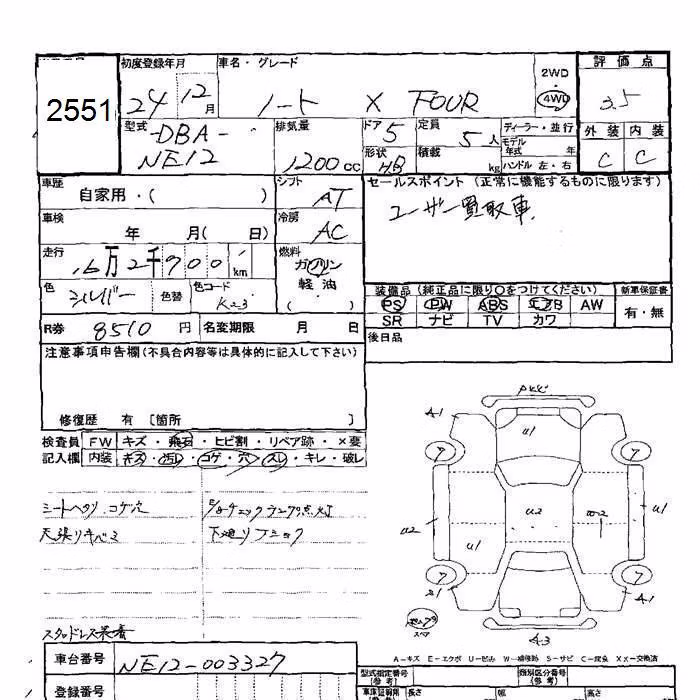 2551
初度登録年月 車名・グレード 2WD 評価点
24 12月 ノート X FOUR 4WD 3.5
型式 排気量 ドア 定員 ディーラー・並行 外装 内装
DBA- 5 5人 モデル年式 年
NE12 1200cc 形状 HB 積載 kg ハンドル 左・右 C C
車歴 シフト セールスポイント (正常に機能するものに限ります)
自家用・( ) AT ユーザー買取車
車検 冷房
年 月( 日) AC
走行 燃料
16万2千900 km ガソリン
色 色替 色コード 軽・油 装備品 (純正品に限り○をつけてください) 新車保証書
シルバー K23 ( ) PS PW ABS エアB AW 有・無
SR ナビ TV カワ
R券 8510円 名変期限 月 日 後日品
注意事項申告欄(不具合内容等は具体的に記入して下さい)
修復歴 有 [箇所 ]
検査員 FW キズ・飛石・ヒビ割・リペア跡・×要
記入欄 内装 キズ・汚レ・コゲ・穴・スレ・キレ・破レ
シートヘタリ コゲ穴
天張りキバミ 下廻り
スタッドレス装着
A1 U1 A1
7 7
U2 U1 U2 W2 U1
7 7
A1
スペア
A3
A-キズ E-エクボ U-凹み W-補修跡 S-サビ C-腐食 XX-交換済
車台番号 NE12-003327
型式指定番号(参考) 類別区分番号(参考)
登録番号 長さ 幅 高さ